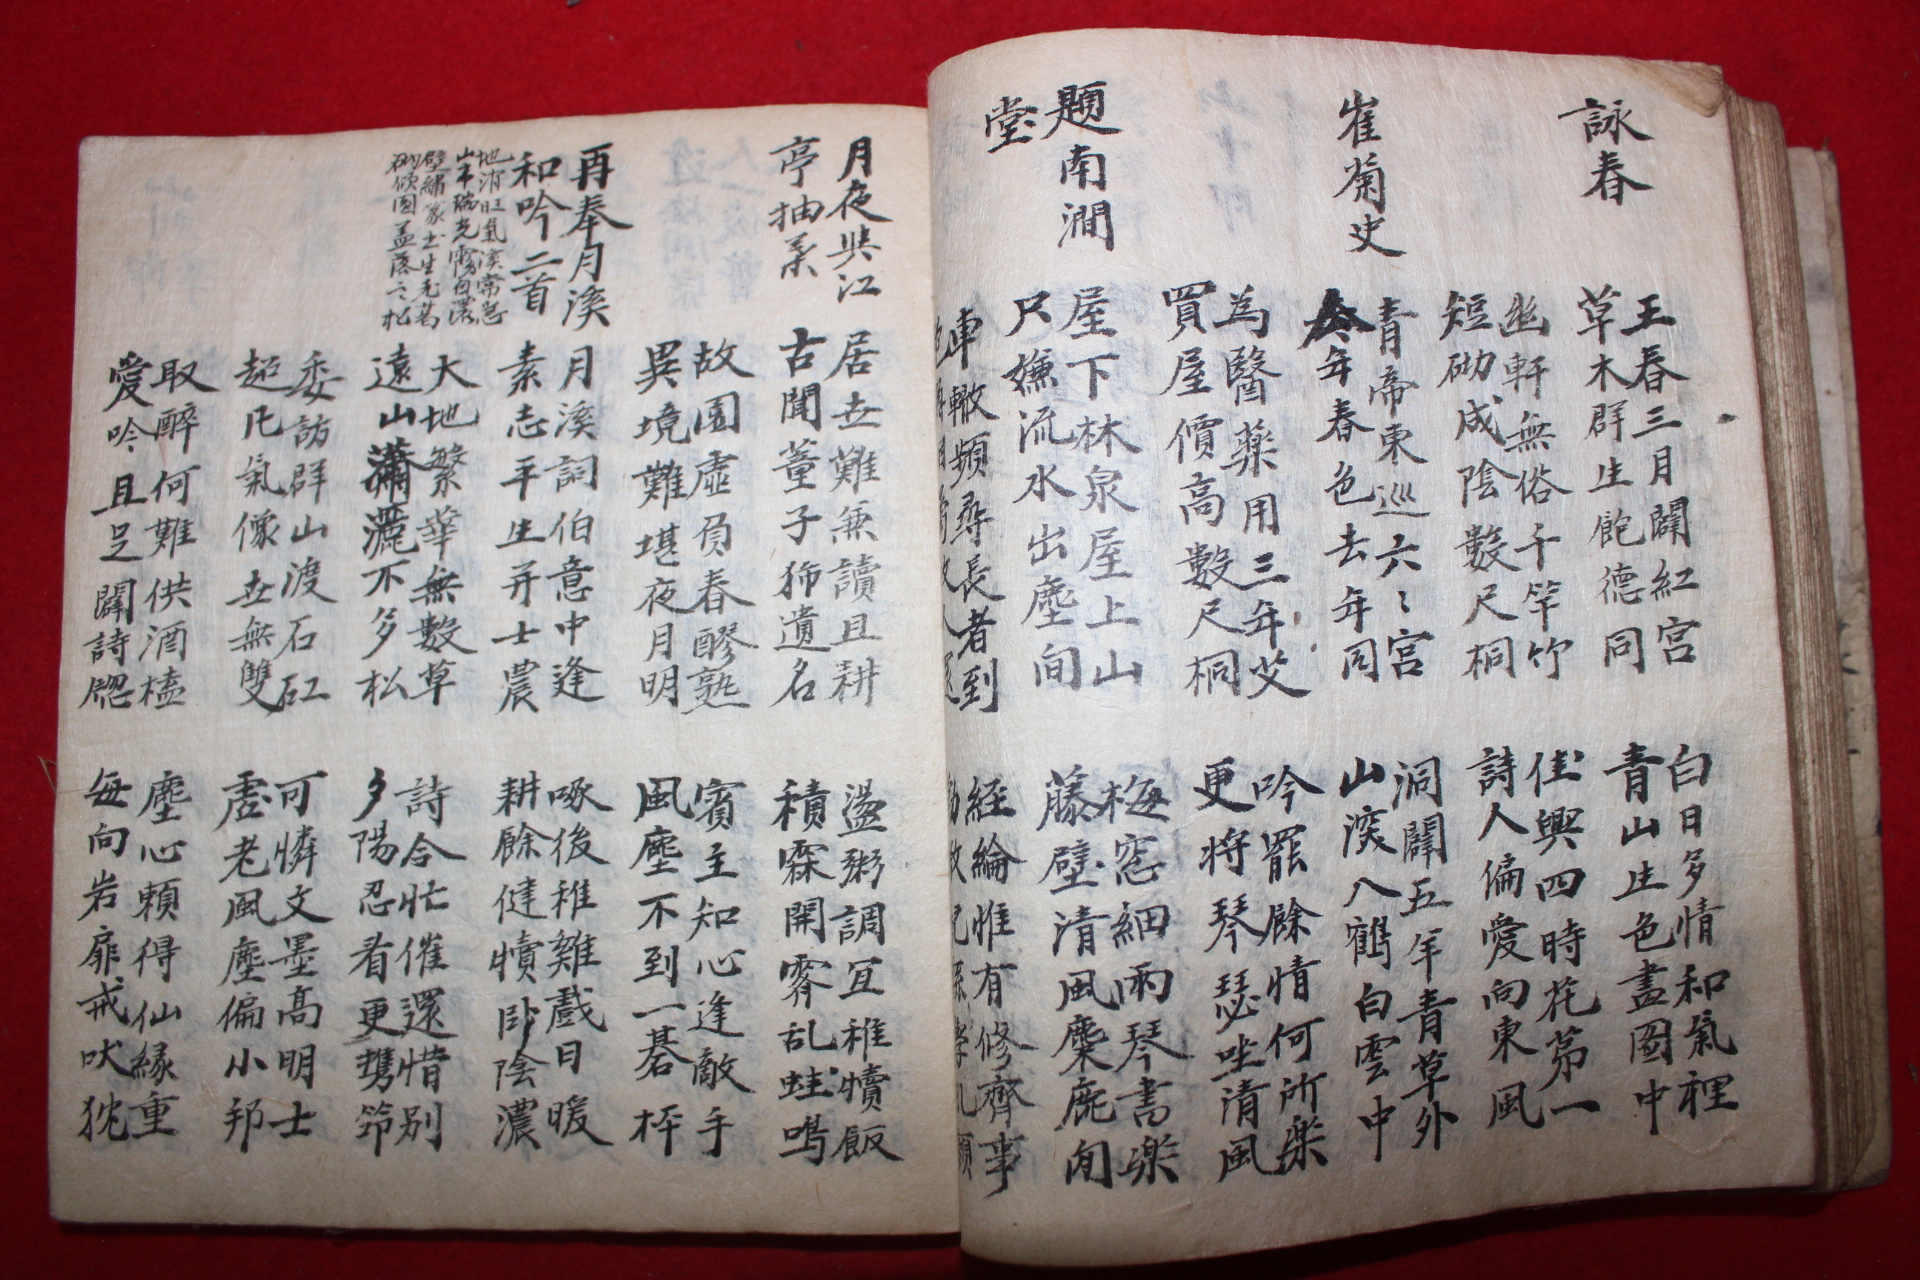 詠春
王春三月闢紅宮
草木群生飽德同
白日多情和氣裡
青山生色盡圖中
幽軒無俗千竿竹
短砌成陰數尺桐
佳興四時花第一
詩人偏愛向東風
崔菊史
青帝東巡六〻宮
今年春色去年同
洞闢五年青草外
山深八鶴白雲中
為醫藥用三年艾
買屋價高數尺桐
吟罷餘情何所樂
更将琴瑟坐清風
題南澗
堂
屋下林泉屋上山
尺嫌流水出塵间
梅窓細雨琴書樂
藤壁清風麋鹿閒
車轍頻尋長者到
經綸惟有修齊事
月夜與江
亭抽柔
居世難無讀且耕
古聞董子沛遺名
盪粥調宜稚犢飯
積霖開霽乱蛙鳴
故園虛負春醪熟
異境難堪夜月明
賓主知心逢敵手
風塵不到一碁枰
再奉月溪
和吟二首
月溪詞伯意中逢
素志平生并士農
啄後稚雞戲日暖
耕餘健犢卧陰濃
大地繁華無數草
遠山瀟灑不多松
詩合忙催還惜别
夕陽忍看更携筇
地消旺氣溪常急
山中瑞光霧自濃
壁繡篆書生光苔
砌傾圓盖落〻松
委訪群山渡石矼
超凡氣像世無雙
可憐文墨高明士
虛老風塵偏小邦
取醉何難供酒榼
愛吟且足闢詩牕
塵心頼得仙緣重
每向岩扉戒吠狵